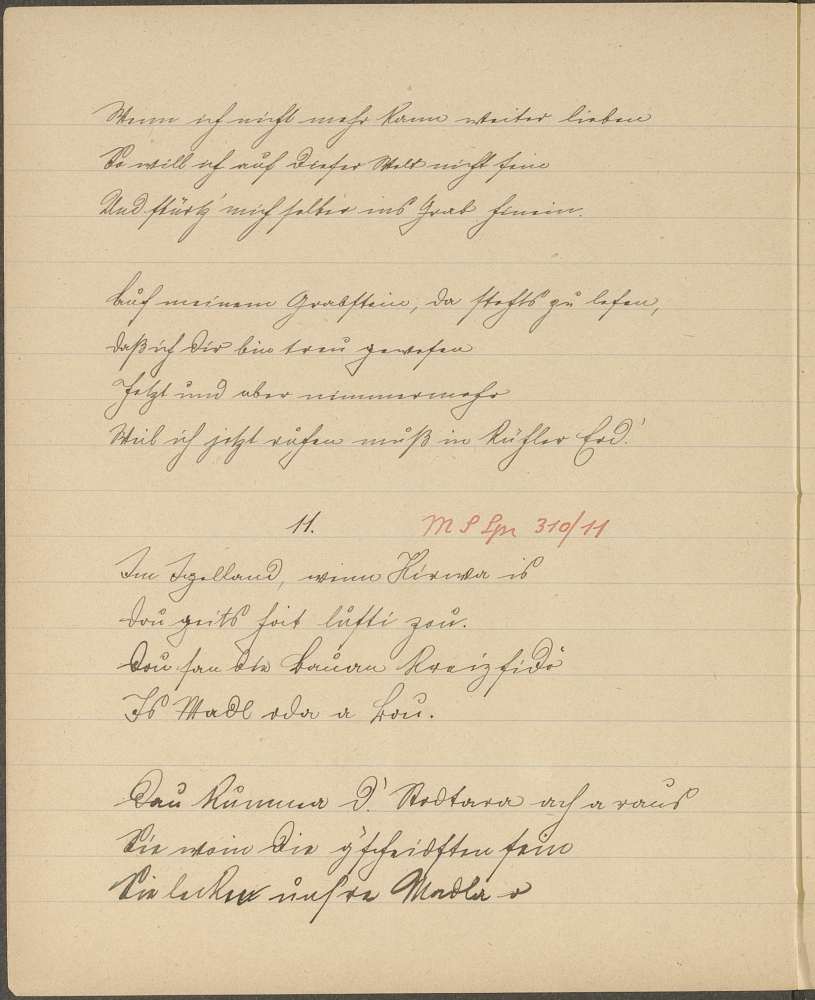 Wenn ich nicht mehr kann weiter lieben
So will ich auf dieser Welt nicht sein
Und stürtz' mich selber ins Grab hinein.
Auf meinem Grabstein, da stehts zu lesen,
daß ich dir bin treu gewesen
Jetzt und aber nimmermehr
Weil ich jetzt ruhen muß in kühler Erd'
11. M S Lpr 310/11
Im Igelland, wenn Kirwa is
dou geits heit lusti zou.
Dou san die Bauan kreizfidö
Is Madl oda a Bou.
Dau kumma d' Stodtara ach a raus
Sie woin die g'scheidsten sein
Sie lecken unsre Madla o